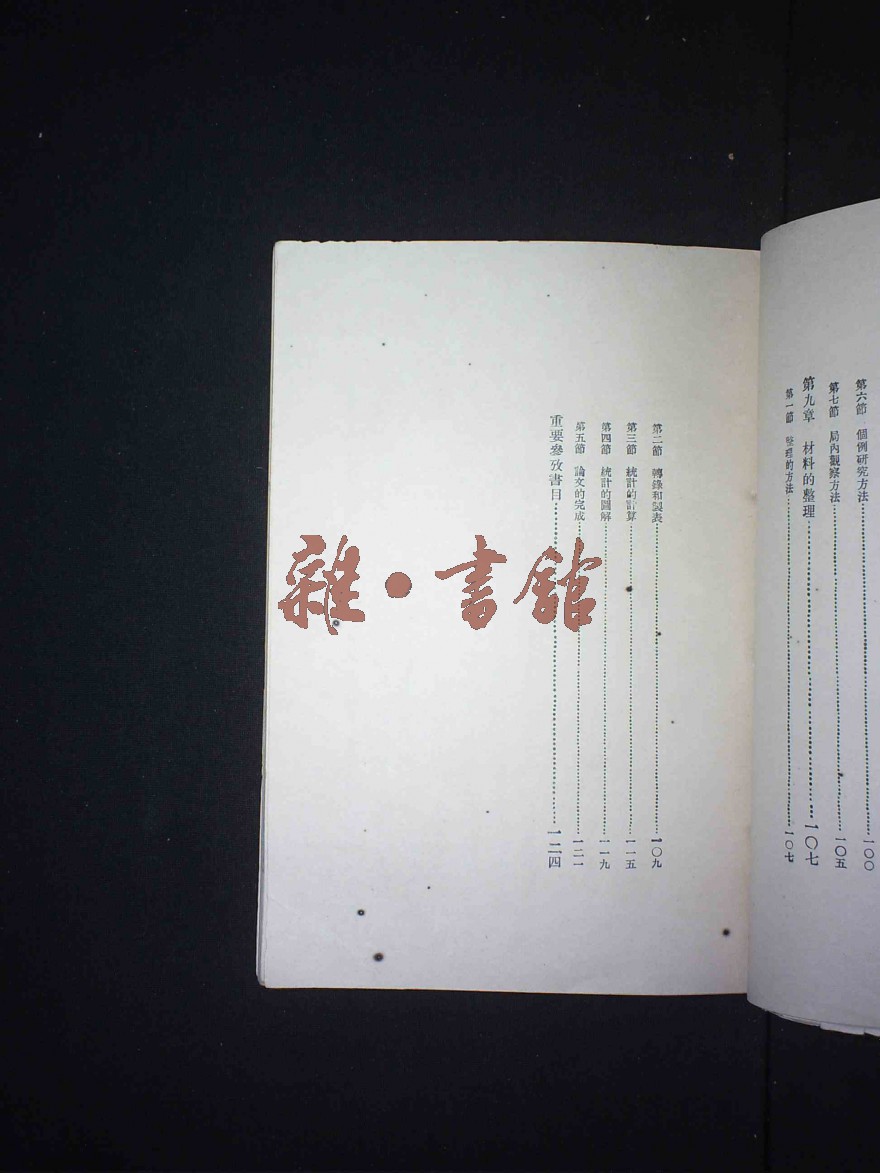 第六節　個例研究方法……一〇〇
第七節　局內觀察方法……一〇五
第九章　材料的整理……一〇七
第一節　整理的方法……一〇七
第二節　轉錄和製表……一〇九
第三節　統計的計算……一一五
第四節　統計的圖解……一一九
第五節　論文的完成……一二一
重要參攷書目……一二四
雜・書館